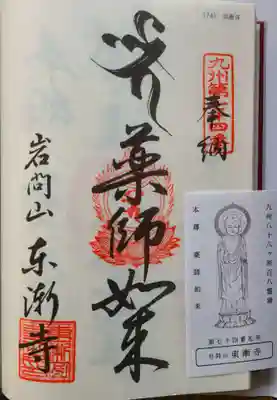 (74) 東漸寺
九州第七十四番
奉納
薬師如来
岩間山
東漸寺
九州八十八ヶ所百八霊場
本尊 薬師如来
第七十四番札所
東漸寺